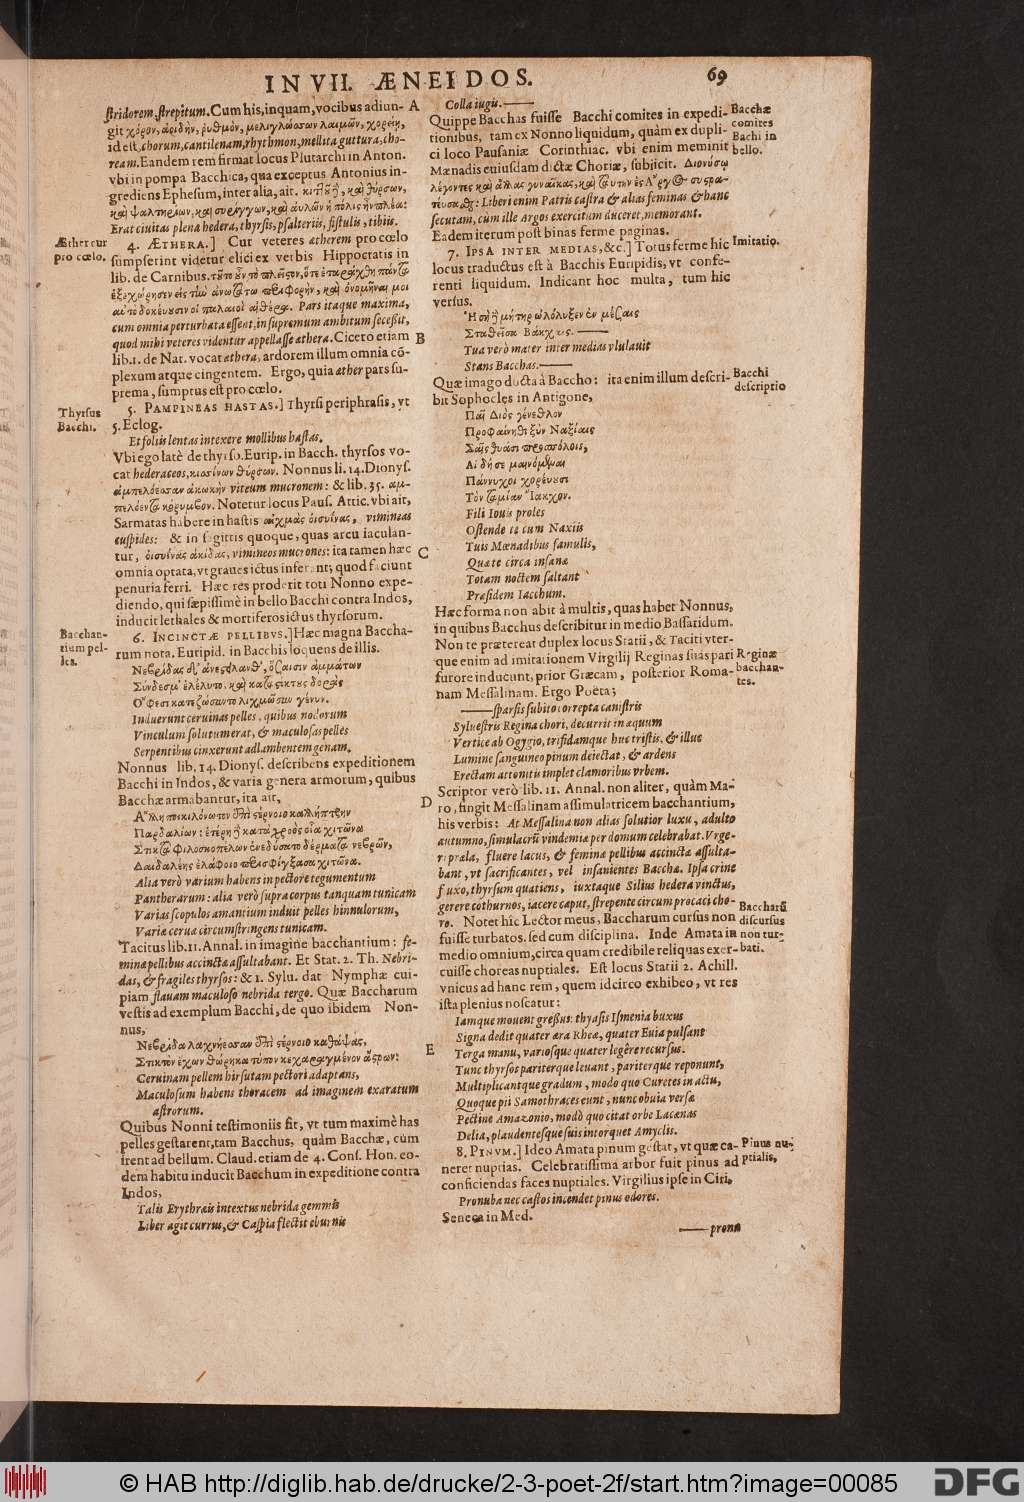 IN VII. ÆNEIDOS.
69
stridorem, strepitum. Cum his, inquam, vocibus adiun-
git χόρον, ἀοιδὴν, ῥυθμὸν, μελιγλώσσων λαιμῶν, χορείην,
id est, chorum, cantilenam, rhythmon, mellita guttura, cho-
ream. Eandem rem firmat locus Plutarchi in Anton.
vbi in pompa Bacchica, qua exceptus Antonius in-
grediens Ephesum, inter alia, ait. κιττοῦ ἢ, καὶ θύρσων,
καὶ ψαλτηρίων, καὶ συρίγγων, καὶ αὐλῶν ἡ πόλις ἦν πλέα:
Erat civitas plena hedera, thyrsis, psalteriis, fistulis, tibiis.
Æther cur
pro cœlo.
4. ÆTHERA.] Cur veteres atherem pro cœlo
sumpserint videtur elici ex verbis Hippocratis in
lib. de Carnibus. τοῦτο οὖν τὸ πλεῖστον, ὅτε ἐταράχθη πάντα
ἐξεχώρησεν εἰς τὴν ἀνωτάτω περιφορὴν, καὶ ὀνομῆναί μοι
αὐτὸ δοκέουσιν οἱ παλαιοὶ αἰθέρα. Pars itaque maxima,
cum omnia perturbata essent, in supremum ambitum secessit,
quod mihi veteres videntur appellasse athera. Cicero etiam
lib. 1. de Nat. vocat athera, ardorem illum omnia cō-
plexum atque cingentem. Ergo, quia ather pars su-
prema, sumptus est pro cœlo.
Thyrsus
Bacchi.
5. PAMPINEAS HASTAS.] Thyrsi periphrasis, vt
5. Eclog.
Et foliis lentas intexere mollibus hastas.
Vbi ego latè de thyrso. Eurip. in Bacch. thyrsos vo-
cat hederaceos, κισσίνων θύρσων. Nonnus li. 14. Dionys.
ἀμπελόεσσαν ἀκωκὴν viteum mucronem: & lib. 35. ἀμ-
πελόεντα κόρυμβον. Notetur locus Paus. Attic. vbi ait,
Sarmatas habere in hastis αἰχμὰς ὀϊσυΐνας, vimineas
cuspides: & in sagittis quoque, quas arcu iaculan-
tur, ὀϊσυΐνας ἀκίδας, vimineos mucrones: ita tamen hæc
omnia optata, vt graves ictus inferant; quod faciunt
penuria ferri. Hæc res proderit toti Nonno expe-
diendo, qui sæpissimè in bello Bacchi contra Indos,
inducit lethales & mortiferos ictus thyrsorum.
Bacchan-
tium pel-
les.
6. INCINCTÆ PELLIBVS.] Hæc magna Baccha-
rum nota. Euripid. in Bacchis, loquens de illis.
Νεβρίδας δ' ἀνεστείλανθ', ὅσαισιν ἁμμάτων
Σύνδεσμ' ἐλέλυτο, καὶ καταστίκτους δορὰς
Ὄφεσι κατεζώσαντο λιχμῶσιν γένυν.
Induerunt cervinas pelles, quibus nodorum
Vinculum solutum erat, & maculosas pelles
Serpentibus cinxerunt ad lambentem genam.
Nonnus lib. 14. Dionys. describens expeditionem
Bacchi in Indos, & varia genera armorum, quibus
Bacchæ armabantur, ita ait,
Ἄλλη ποικιλόνωτον ἐπὶ στέρνοιο καλύπτρην
Παρδαλίων: ἑτέρη ἢ κατὰ χροὸς οἷα χιτῶνα
Στικτὰ φιλοσκοπέλων ἐνεδύσατο δέρματα νεβρῶν,
Δαιδαλέης ἐλάφοιο περισφίγξασα χιτῶνα.
Alia verò varium habens in pectore tegumentum
Pantherarum: alia verò supra corpus tanquam tunicam
Varias scopulos amantium induit pelles hinnulorum,
Variæ cervæ circumstringens tunicam.
Tacitus lib. 11. Annal. in imagine bacchantium: fe-
minæ pellibus accinctæ assultabant. Et Stat. 2. Th. Nebri-
das, & fragiles thyrsos: & 1. Sylu. dat Nymphæ cui-
piam flavam maculoso nebrida tergo. Quæ Baccharum
vestis ad exemplum Bacchi, de quo ibidem Non-
nus,
Νεβρίδα λαχνήεσσαν ἐπὶ στέρνοιο καθάψας,
Στικτὸν ἔχων θώρηκα τύπον κεχαραγμένον ἄστρων:
Cervinam pellem hirsutam pectori adaptans,
Maculosum habens thoracem ad imaginem exaratum
astrorum.
Quibus Nonni testimoniis fit, vt tum maximè has
pelles gestarent, tam Bacchus, quàm Bacchæ, cùm
irent ad bellum. Claud. etiam de 4. Cons. Hon. eo-
dem habitu inducit Bacchum in expeditione contra
Indos,
Talis Erythræis intextus nebrida gemmis
Liber agit currus, & Caspia flectit eburnis
A
B
C
D
E
Colla iugis.——
Quippe Bacchas fuisse Bacchi comites in expedi-
tionibus, tam ex Nonno liquidum, quàm ex dupli-
ci loco Pausaniæ Corinthiac. vbi enim meminit
Mænadis cuiusdam dictæ Choriæ, subjicit. Διονύσῳ
λέγοντες καὶ ἄλλας γυναῖκας, καὶ ταύτην ἐς Ἄργος συστρα-
τεύσασθαι: Liberi enim Patris castra & alias feminas & hanc
secutam, cùm ille Argos exercitum duceret, memorant.
Eadem iterum post binas ferme paginas.
Bacchæ
comites
Bachi in
bello.
7. IPSA INTER MEDIAS, &c.] Totus ferme hic
locus traductus est à Bacchis Euripidis, vt confe-
renti liquidum. Indicant hoc multa, tum hic
versus.
Imitatio.
Ἡ σὴ ἢ μήτηρ ὠλόλυξεν ἐν μέσαις
Σταθεῖσα Βάκχαις.——
Tua verò mater inter medias vlulavit
Stans Bacchas.——
Quæ imago ducta à Baccho: ita enim illum descri-
bit Sophocles in Antigone,
Bacchi
descriptio
Παῖ Διὸς γένεθλον
Προφάνηθι ξὺν Ναξίαις
Σαῖς θυάσι περιπόλοις,
Αἱ δή σε μαινόμεναι
Πάννυχοι χορεύουσι
Τὸν ταμίαν Ἴακχον.
Fili Iovis proles
Ostende te cum Naxiis
Tuis Mænadibus famulis,
Quæ te circa insanæ
Totam noctem saltant
Præsidem Iacchum.
Hæc forma non abit à multis, quas habet Nonnus,
in quibus Bacchus describitur in medio Bassaridum.
Non te prætereat duplex locus Statii, & Taciti vter-
que enim ad imitationem Virgilij Reginas suas pari
furore inducunt, prior Græcam, posterior Roma-
nam Messalinam. Ergo Poëta;
Reginæ
bacchan-
tes.
——sparsis subito correpta canistris
Sylvestris Regina chori, decurrit in æquum
Vertice ab Ogygio, trifidamque huc tristis, & illuc
Lumine sanguineo pinum deiectat, & ardens
Erectam attonitis implet clamoribus vrbem.
Scriptor verò lib. 11. Annal. non aliter, quàm Ma-
ro, fingit Messalinam assimulatricem bacchantium,
his verbis: At Messalina non alias solutior luxu, adulto
autumno, simulacrū vindemiæ per domum celebrabat. Vrge-
ri præla, fluere lacus, & feminæ pellibus accinctæ assulta-
bant, vt sacrificantes, vel insanientes Bacchæ. Ipsa crine
fluxo, thyrsum quatiens, iuxtaque Silius hedera vinctus,
gerere cothurnos, iacere caput, strepente circum procaci cho-
ro. Notet hic Lector meus, Baccharum cursus non
fuisse turbatos. sed cum disciplina. Inde Amata in
medio omnium, circa quam credibile reliquas exer-
cuisse choreas nuptiales. Est locus Statii 2. Achill.
vnicus ad hanc rem, quem idcirco exhibeo, vt res
ista plenius noscatur:
Baccharū
discursus
non tur-
bati.
Iamque movent gressus: thyasis Ismenia buxus
Signa dedit quater æra Rheæ, quater Euia pulsant
Terga manu, variosque quater legêre recursus.
Tunc thyrsos pariterque levant, pariterque reponunt,
Multiplicantque gradum, modo quo Curetes in actu,
Quoque pii Samothraces eunt, nunc obvia versæ
Pectine Amazonio, modò quo citat orbe Lacænas
Delia, plaudentesque suis intorquet Amyclis.
8. PINVM.] Ideo Amata pinum gestat, vt quæ ca-
neret nuptias. Celebratissima arbor fuit pinus ad
conficiendas faces nuptiales. Virgilius ipse in Ciri,
Pinus nu-
ptialis.
Pronuba nec castos incendet pinus odores.
Seneca in Med.
——pronu
© HAB http://diglib.hab.de/drucke/2-3-poet-2f/start.htm?image=00085
DFG